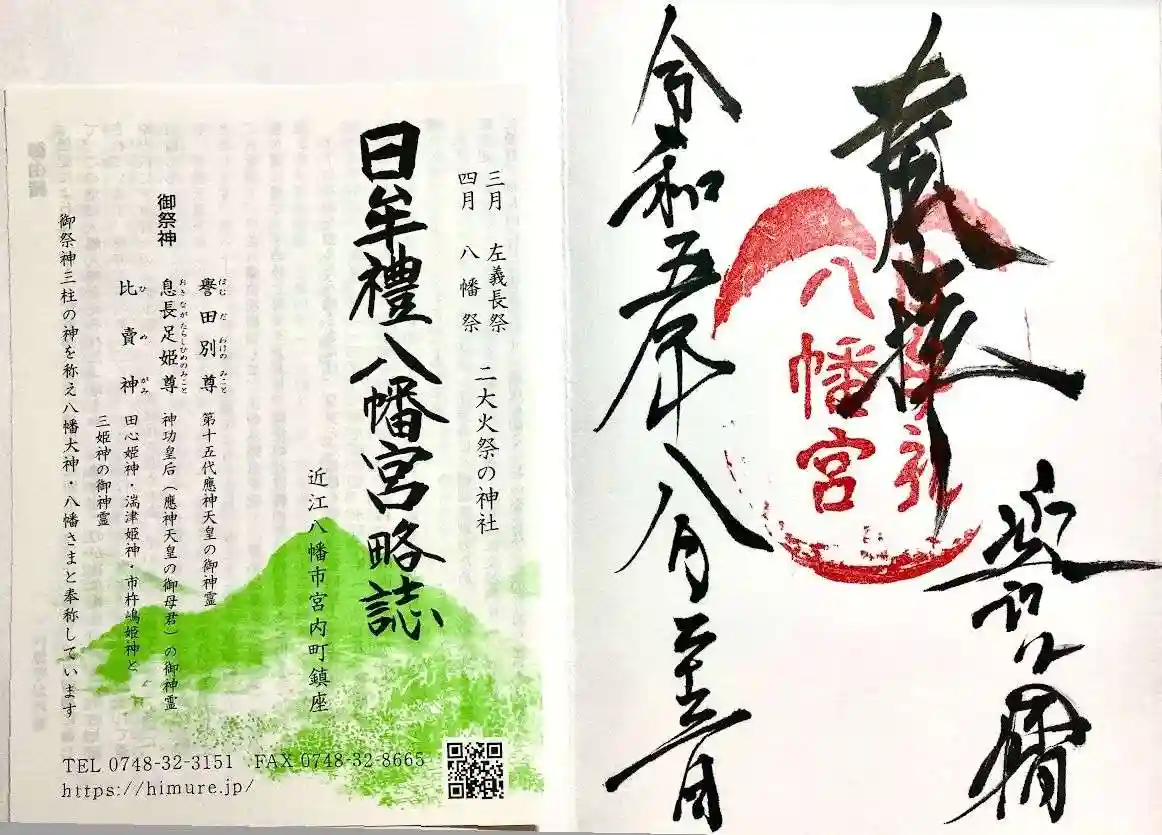 近江八幡
奉拝
八幡宮
令和五年八月二十三日
三月 左義長祭
四月 八幡祭
二大火祭の神社
日牟禮八幡宮略誌
近江八幡市宮内町鎮座
御祭神
譽田別尊 第十五代應神天皇の御神霊
息長足姫尊 神功皇后（應神天皇の御母君）の御神霊
比賣神 田心姫神・湍津姫神・市杵嶋姫神と
三姫神の御神霊
御祭神三柱の神を称え八幡大神・八幡さまと奉称しています
TEL 0748-32-3151 FAX 0748-32-8665
https://himure.jp/